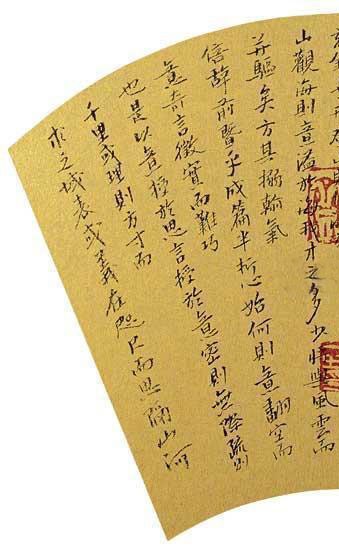 山觀海則意溢於海我才之多少將與風雲而
并驅矣方其搦翰氣
倍辞前暨乎成篇半折心始何則意翻空而
意奇言徵實而難巧
也是以意授於思言授於意密則無際疏則
千里或理則方寸而
求之域表或義在咫尺而思隔山河